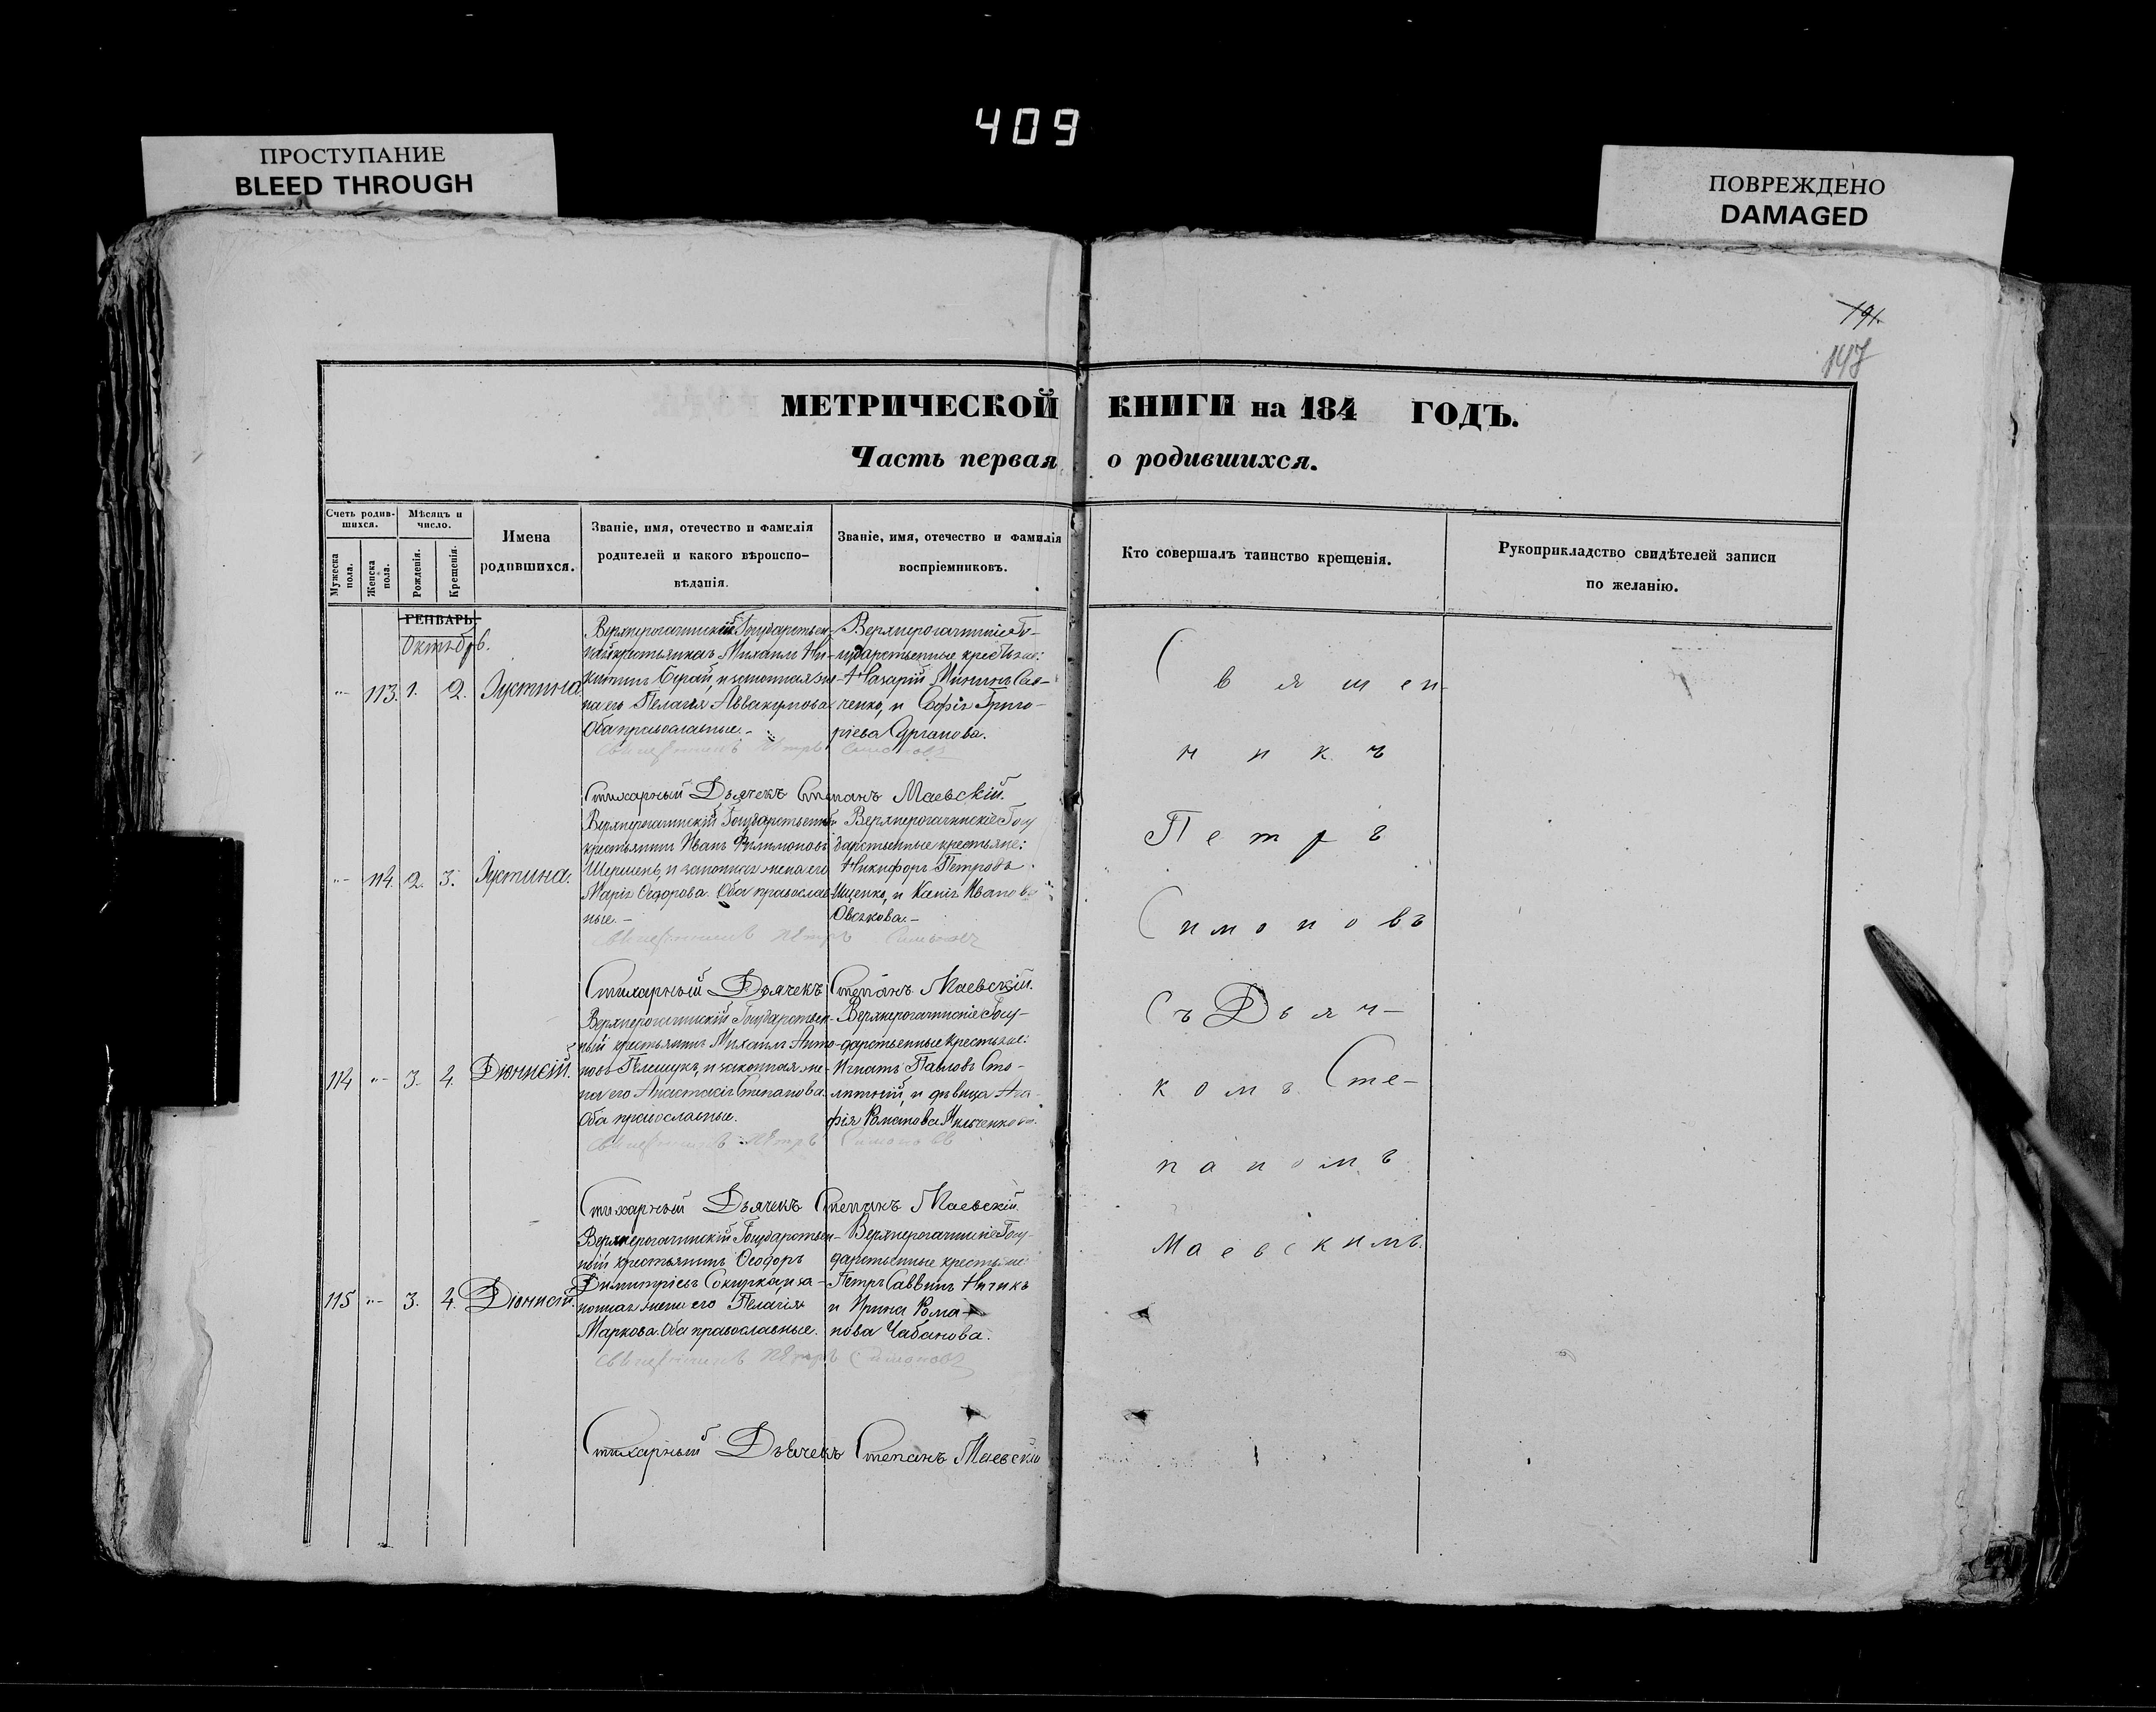 409
ПРОСТУПАНИЕ
BLEED THROUGH
ПОВРЕЖДЕНО
DAMAGED
191.
147
МЕТРИЧЕСКОЙ КНИГИ на 184 ГОДЪ.
Часть первая о родившихся.
Счетъ родившихся.
Мужеска пола.
Женска пола.
Мѣсяцъ и число.
Рожденія.
Крещенія.
Имена родившихся.
Званіе, имя, отечество и фамилія
родителей и какого вѣроиспо-
вѣданія.
Званіе, имя, отечество и фамилія
воспріемниковъ.
Кто совершалъ таинство крещенія.
Рукоприкладство свидѣтелей записи
по желанію.
ГЕНВАРЬ
Октябрь.
113. 1. 2. Іустина
Верхнерогачинскій Государствен-
ный крестьянинъ Михаилъ Ни-
китинъ Сѣрый, и законная же-
на его Пелагія Аввакумова
Оба православные.-
Верхнерогачинскіе Го-
сударственные крестьяне:
Назарій Мининъ Сав-
ченко, и Софія Григо-
ріева Сарганова.
Симоновъ
Стихарный Дьячекъ Степанъ Маевскій.
114. 2. 3. Іустина.
Верхнерогачинскій Государственный
крестьянинъ Иванъ Филимоновъ
Шершень, и законная жена его
Марія Ѳедорова. Оба православ-
ные.-
Верхнерогачинскіе Госу
дарственные крестьяне:
Никифоръ Петровъ
Ищенко, и Ксенія Иванова
Овсякова.-
Петръ Симоновъ
Стихарный Дьячекъ Степанъ Маевскій.
114 3. 4. Діонисій.
Верхнерогачинскій Государствен-
ный крестьянинъ Михаилъ Анто-
новъ Пелешукъ, и законная же-
на его Анастасія Степанова.
Оба православные.
Верхнерогачинскіе Госу-
дарственные крестьяне:
Игнатъ Павловъ Сто-
лѣтній, и дѣвица Ага-
фія Романова Ильченкова.
Петръ Симоновъ
Стихарный Дьячекъ Степанъ Маевскій.
115 3. 4. Діонисій.
Верхнерогачинскій Государствен-
ный крестьянинъ Ѳеодоръ
Димитріевъ Сокирка, и за-
конная жена его Пелагія
Маркова. Оба православные.
Верхнерогачинскіе Госу-
дарственные крестьяне
Петръ Саввинъ Ничикъ
и Ирина Рома-
нова Чабанова.
Петръ Симоновъ
Стихарный Дьячекъ Степанъ Маевскій
Священ-
никъ
Петръ
Симоновъ
Съ Дьяч-
комъ Сте-
паномъ
Маевскимъ.